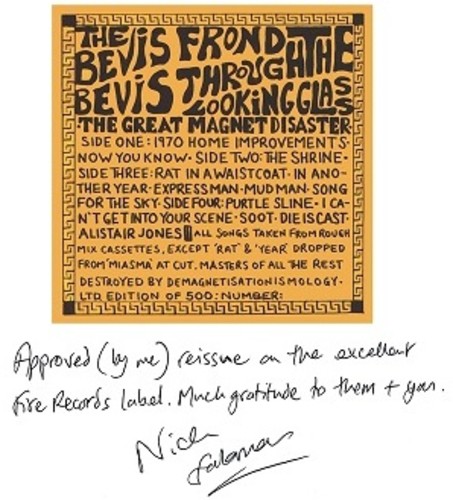 THE BEVIS FROND THE
BEVIS THROUGH
LOOKING GLASS
·THE GREAT MAGNET DISASTER·
SIDE ONE: 1970 HOME IMPROVEMENTS·
NOW YOU KNOW · SIDE TWO: THE SHRINE·
SIDE THREE: RAT IN A WAISTCOAT · IN ANO-
THER YEAR · EXPRESS MAN · MUD MAN · SONG
FOR THE SKY · SIDE FOUR: PURTLE SLINE · I CA-
N'T GET INTO YOUR SCENE · SOOT · DIE IS CAST·
ALISTAIR JONES ALL SONGS TAKEN FROM ROUGH
MIX CASSETTES, EXCEPT 'RAT' & 'YEAR' DROPPED
FROM 'MIASMA' AT CUT. MASTERS OF ALL THE REST
DESTROYED BY DEMAGNETISATIONISMOLOGY·
LTD EDITION OF 500: NUMBER:
Approved (by me) reissue on the excellent
Fire Records label. Much gratitude to them + you.
Nick
Saloman